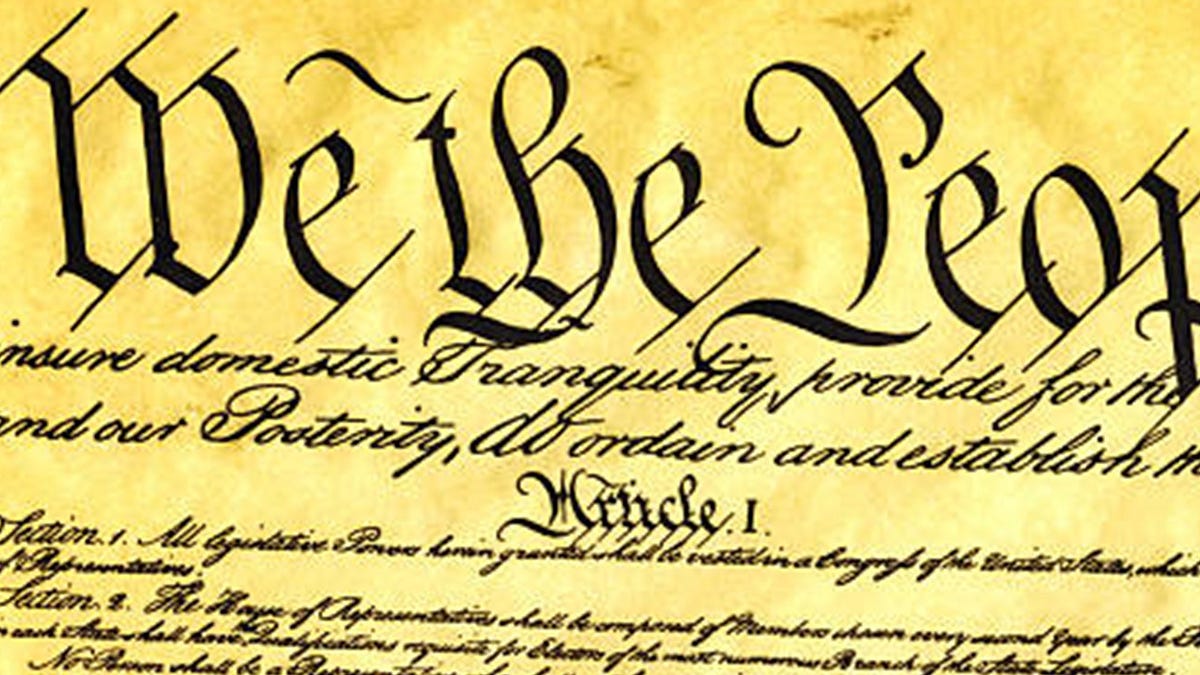 We the Peop
nsure domestic Tranquility, provide for the
and our Posterity, do ordain and establish th
Article. I.
Section. 1. All legislative Powers herein granted shall be vested in a Congress of the United States, which
of Representatives.
Section. 2. The House of Representatives shall be composed of Members chosen every second Year by the
in each State shall have the Qualifications requisite for Electors of the most numerous Branch of the State Legislature.
No Person shall be a Representative